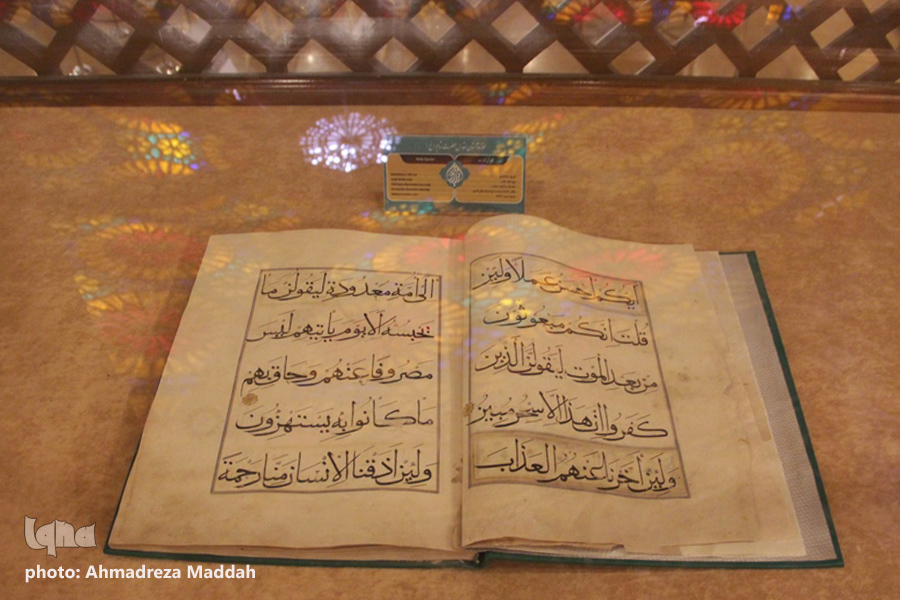 أيكم أحسن عملا ولئن
قلت إنكم مبعوثون
من بعد الموت ليقولن الذين
كفروا إن هذا إلا سحر مبين
ولئن أخرنا عنهم العذاب
إلى أمة معدودة ليقولن ما
يحبسه ألا يوم يأتيهم ليس
مصروفا عنهم وحاق بهم
ما كانوا به يستهزؤن
ولئن أذقنا الإنسان منا رحمة
Iqna
photo: Ahmadreza Maddah